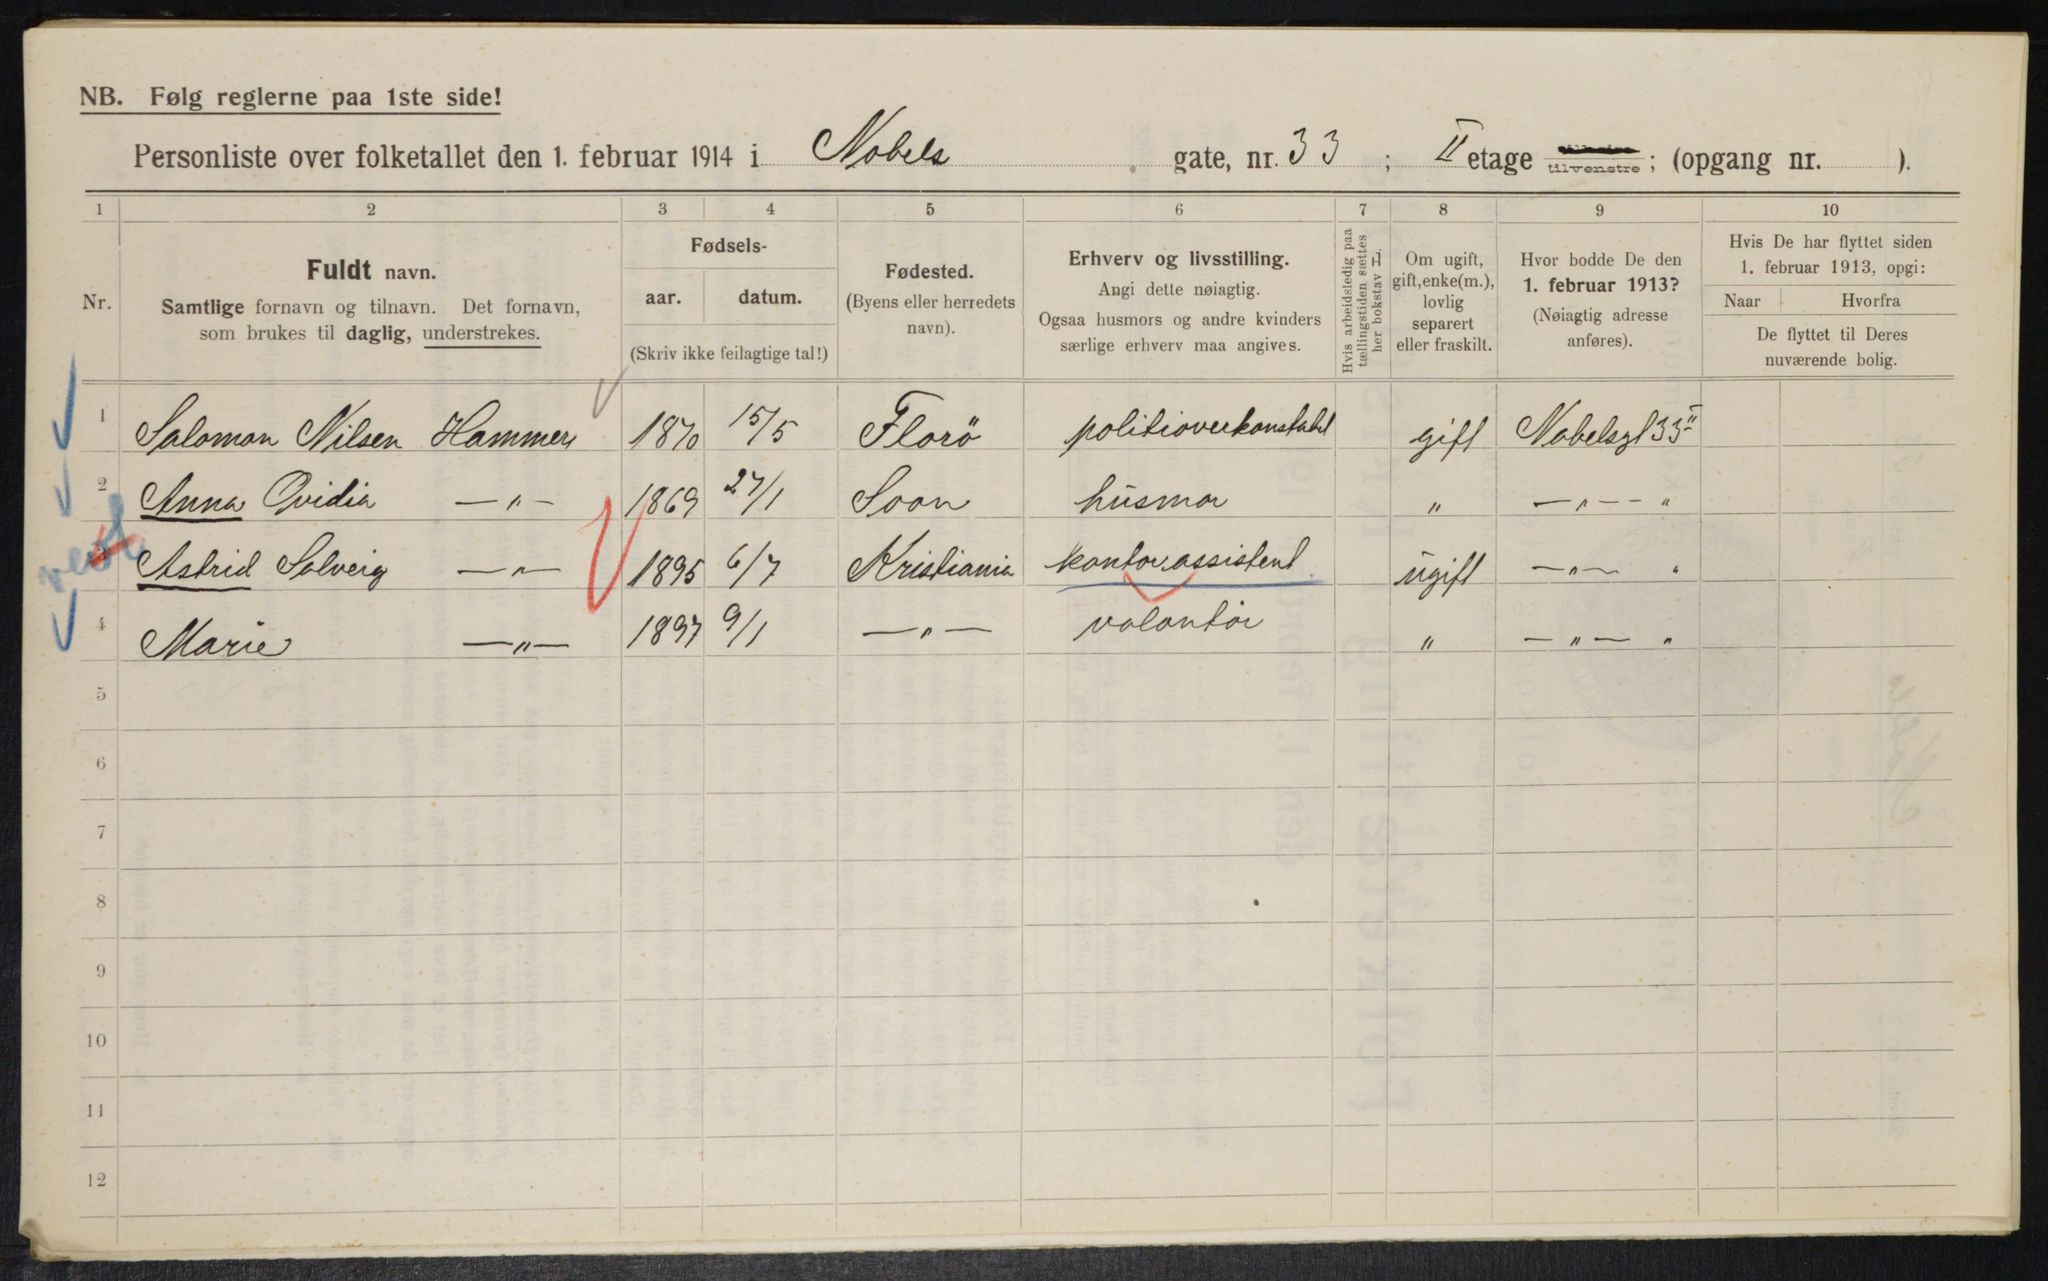 NB. Følg reglerne paa 1ste side!
Personliste over folketallet den 1. februar 1914 i Nobels gate, nr. 33 ; II etage tilvenstre ; (opgang nr. ).
1 2 3 4 5 6 7 8 9 10
Nr.
Fuldt navn.
Samtlige fornavn og tilnavn. Det fornavn,
som brukes til daglig, understrekes.
Fødsels-
aar. datum.
(Skriv ikke feilagtige tal!)
Fødested.
(Byens eller herredets
navn).
Erhverv og livsstilling.
Angi dette nøiagtig.
Ogsaa husmors og andre kvinders
særlige erhverv maa angives.
Hvis arbeidsledig paa
tællingstiden sættes
her bokstav L.
Om ugift,
gift, enke(m.),
lovlig
separert
eller fraskilt.
Hvor bodde De den
1. februar 1913?
(Nøiagtig adresse
anføres).
Hvis De har flyttet siden
1. februar 1913, opgi:
Naar Hvorfra
De flyttet til Deres
nuværende bolig.
1 Salomon Nilsen Hammer 1870 15/5 Florö politioverkonstabel gift Nobelsgt 33 II
2 Anna Ovidia —„— 1869 27/1 Soon husmor „ —„— „
3 Astrid Solveig —„— 1895 6/7 Kristiania kontorassistent ugift —„— „
4 Marie —„— 1897 9/1 —„— volontør „ —„— „
5
6
7
8
9
10
11
12